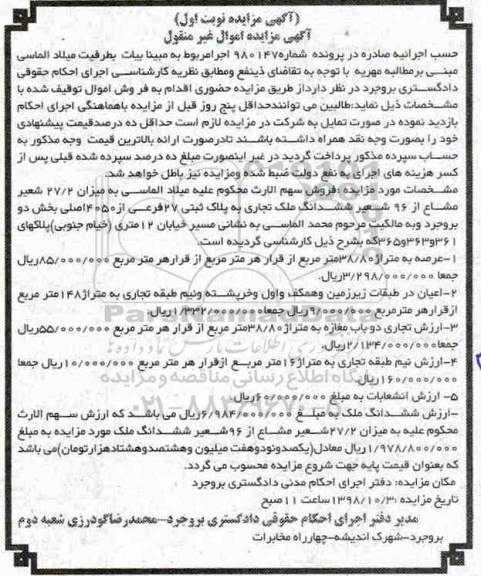 (آگهی مزایده نوبت اول)
آگهی مزایده اموال غیر منقول
حسب اجرائیه صادره در پرونده شماره ۹۸۰۱۴۷ اجرا مربوط به مبینا بیات بطرفیت میلاد الماسی
مبنی بر مطالبه مهریه با توجه به تقاضای ذینفع ومطابق نظریه کارشناسی اجرای احکام حقوقی
دادگستری بروجرد در نظر دارد از طریق مزایده حضوری اقدام به فروش اموال توقیف شده با
مشخصات ذیل نماید: طالبین می توانند حداقل پنج روز قبل از مزایده باهماهنگی اجرای احکام
بازدید نموده در صورت تمایل به شرکت در مزایده لازم است حداقل ده درصد قیمت پیشنهادی
خود را بصورت وجه نقد همراه داشته باشند تا در صورت ارائه بالاترین قیمت وجه مذکور به
حساب سپرده مذکور پرداخت گردید در غیر اینصورت مبلغ ده درصد سپرده شده قبلی پس از
کسر هزینه های اجرای به نفع دولت ضبط شده ومزایده نیز باطل خواهد شد.
مشخصات مورد مزایده: فروش سهم الارث محکوم علیه میلاد الماسی به میزان ۲۷/۲ شعیر
مشاع از ۹۶ شعیر ششدانگ ملک تجاری به پلاک ثبتی ۲۷ فرعی از ۴۰۵۰ اصلی بخش دو
بروجرد وبه مالکیت مرحوم محمد الماسی به نشانی مسیر خیابان ۱۲ متری (خیام جنوبی) پلاکهای
۳۶۱ و ۳۶۳ و ۳۶۵ که بشرح ذیل کارشناسی گردیده است.
۱-عرصه به متراژ ۳۸/۸۰ متر مربع از قرار هر متر مربع از قرار هر متر مربع ۸۵/۰۰۰/۰۰۰ ریال
جمعا ۳/۲۹۸/۰۰۰/۰۰۰ ریال.
۲-اعیان در طبقات زیرزمین وهمکف واول وخرپشته ونیم طبقه تجاری به متراژ ۱۴۸ متر مربع
از قرار هر مترمربع ۹/۰۰۰/۰۰۰ ریال جمعا ۱/۳۳۲/۰۰۰/۰۰۰ ریال.
۳-ارزش تجاری دو باب مغازه به متراژ ۳۸/۸۰ متر مربع از قرار هر متر مربع ۵۵/۰۰۰/۰۰۰ ریال
جمعا ۲/۱۳۴/۰۰۰/۰۰۰ ریال.
۴-ارزش نیم طبقه تجاری به متراژ ۱۶ متر مربع از قرار هر متر مربع ۱۰/۰۰۰/۰۰۰ ریال جمعا
۱۶۰/۰۰۰/۰۰۰ ریال.
۵- ارزش انشعابات به مبلغ ۶۰/۰۰۰/۰۰۰ ریال
-ارزش ششدانگ ملک به مبلغ ۶/۹۸۴/۰۰۰/۰۰۰ ریال می باشد که ارزش سهم الارث
محکوم علیه به میزان ۲۷/۲ شعیر مشاع از ۹۶ شعیر ششدانگ ملک مورد مزایده به مبلغ
۱/۹۷۸/۸۰۰/۰۰۰ ریال معادل (یکصدونودوهفت میلیون وهشتصدوهشتادهزارتومان) می باشد
که بعنوان قیمت پایه جهت شروع مزایده محسوب می گردد.
مکان مزایده: دفتر اجرای احکام مدنی دادگستری بروجرد
تاریخ مزایده: ۱۳۹۸/۱۰/۳ ساعت ۱۱ صبح
مدیر دفتر اجرای احکام حقوقی دادگستری بروجرد-محمدرضا گودرزی شعبه دوم
بروجرد-شهرک اندیشه-چهارراه مخابرات
پایگاه اطلاع رسانی مناقصه و مزایده